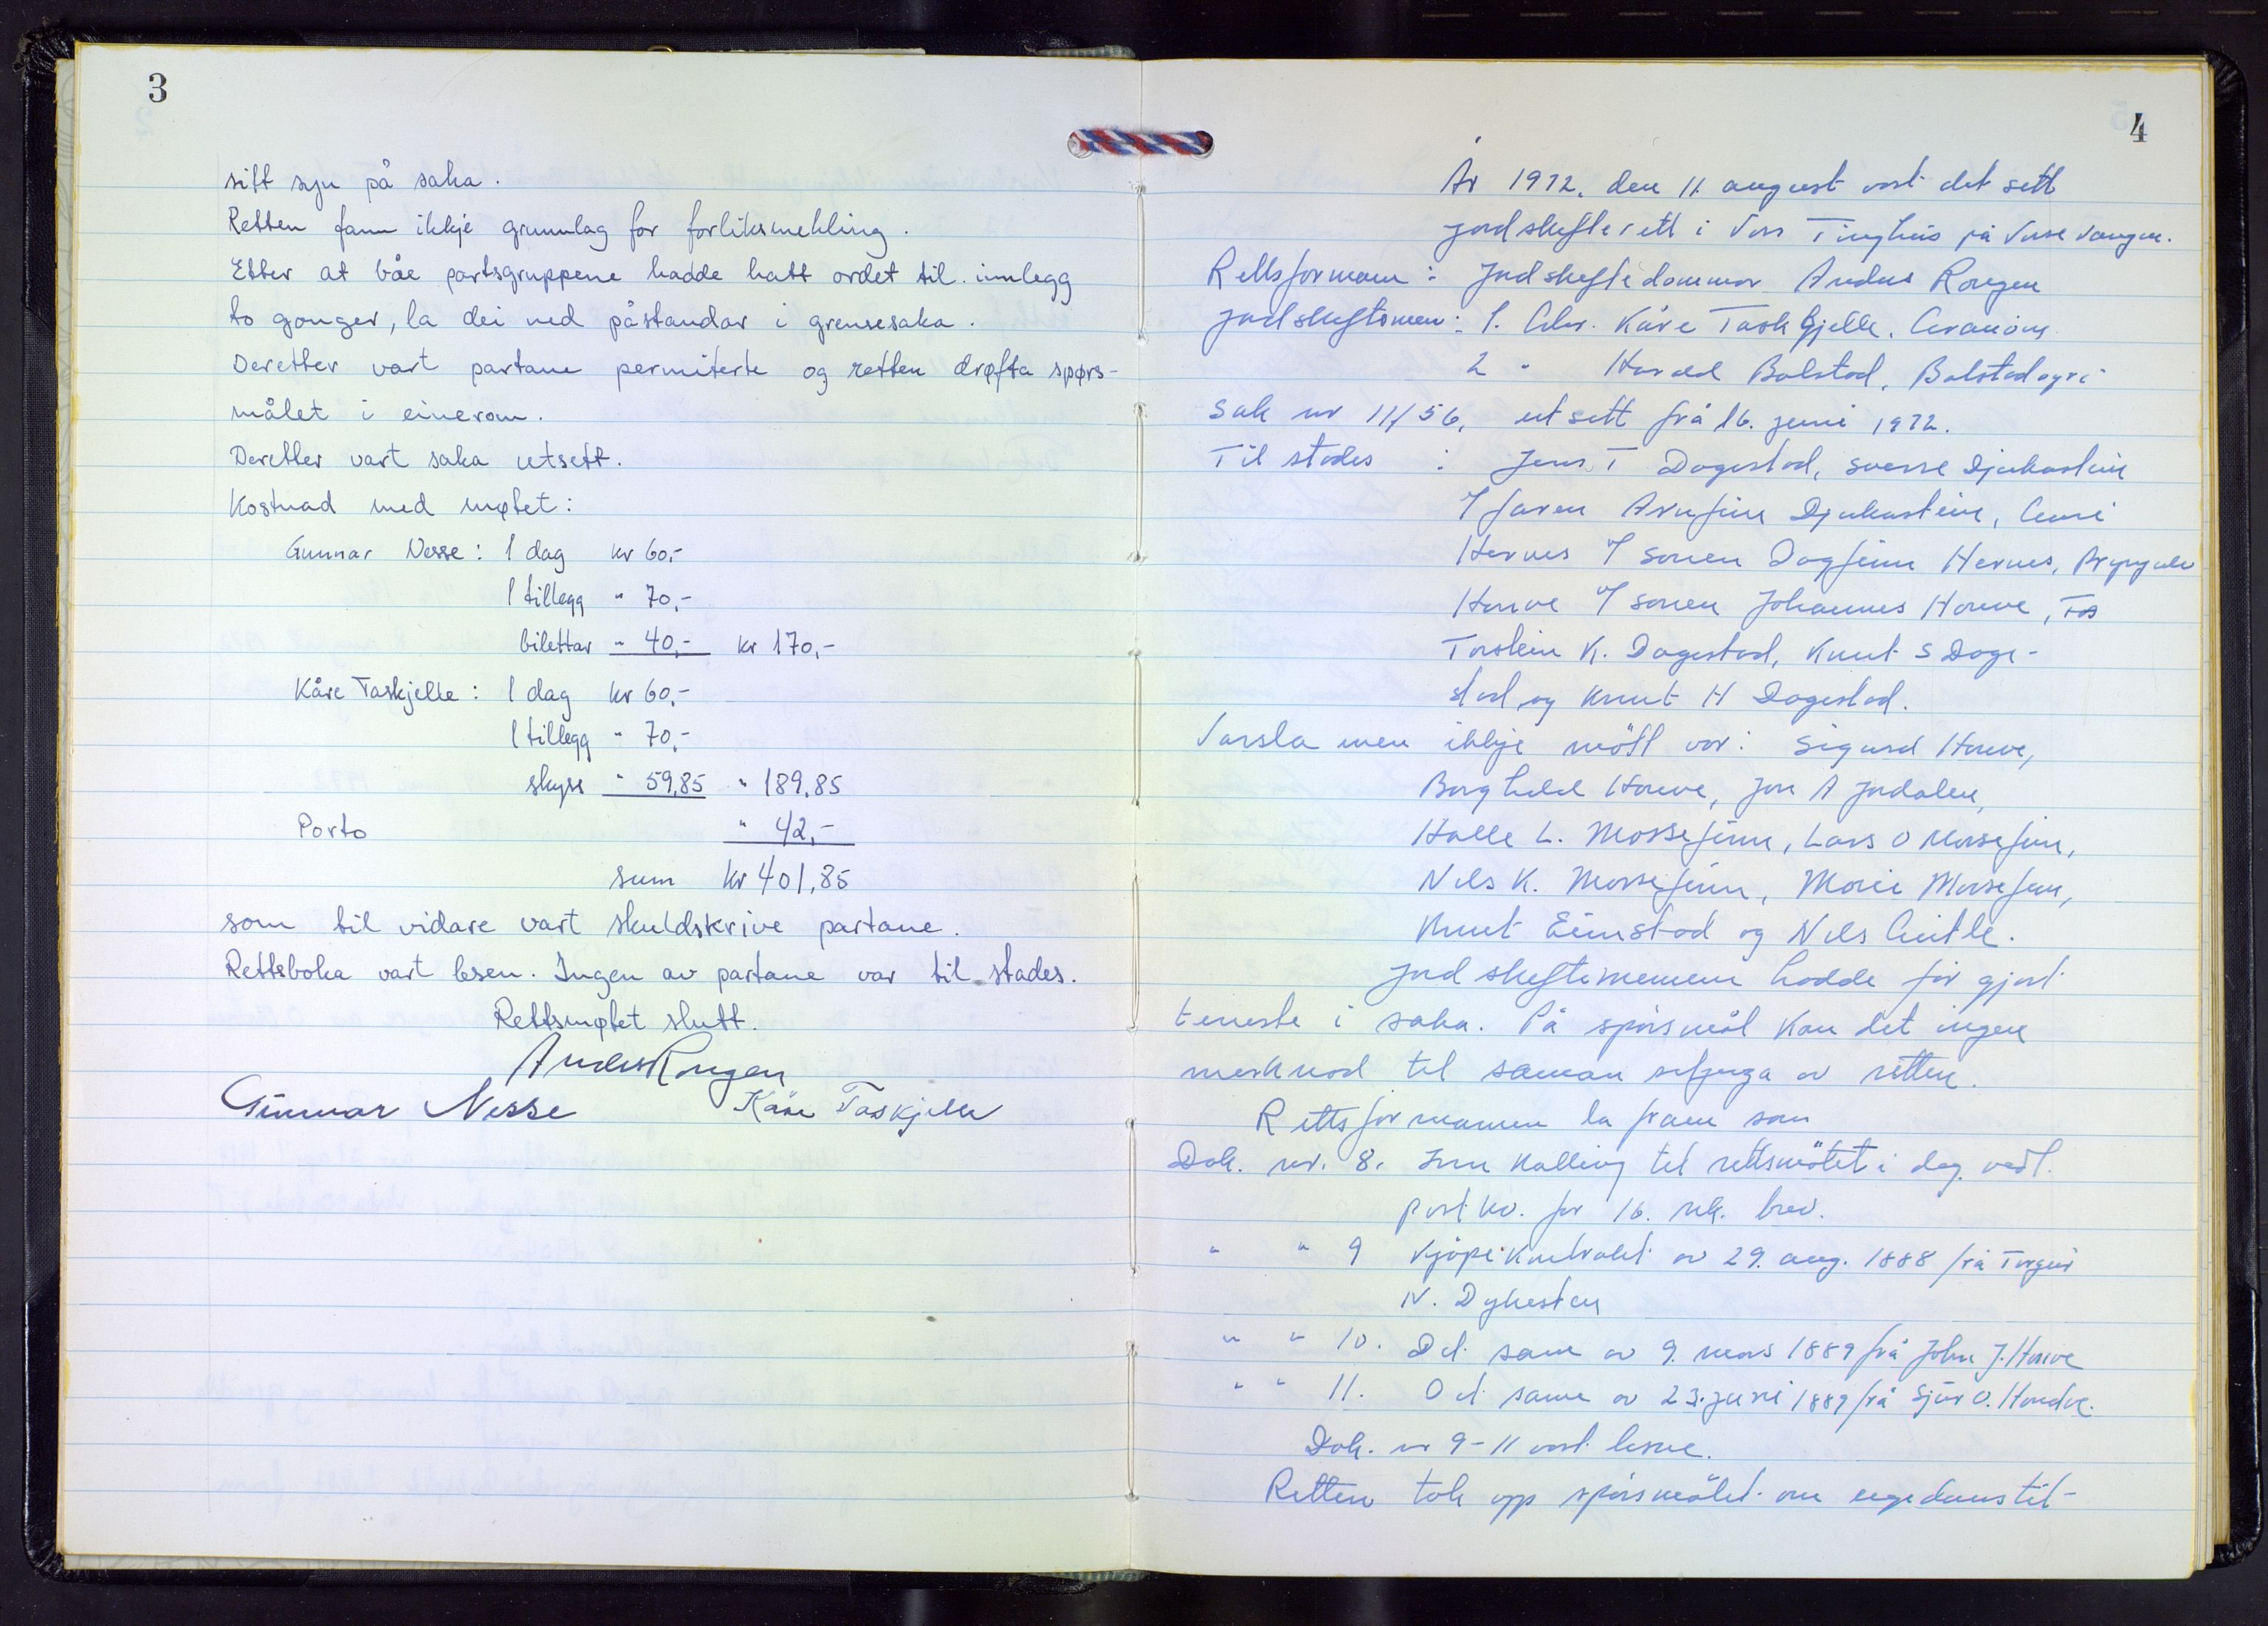 3
sitt syn på saka.
Retten fann ikkje grunnlag for forliksmekling.
Etter at båe partsgruppene hadde hatt ordet til innlegg
to gonger, la dei ned påstandar i grensesaka.
Deretter vart partane permiterte og retten drøfta spørs-
målet i einerom.
Deretter vart saka utsett.
Kostnad med møtet:
Gunnar Nesse: 1 dag kr 60,-
1 tillegg " 70,-
bilettar " 40,- kr 170,-
Kåre Taskjelle: 1 dag kr 60,-
1 tillegg " 70,-
skyss " 59,85 " 189,85
Porto " 42,-
sum kr 401,85
som til vidare vart skuldskrive partane.
Rettsboka vart lesen. Ingen av partane var til stades.
Rettsmøtet slutt.
Anders Rongen
Gunnar Nesse Kåre Taskjelle
4
År 1972, den 11 august vart det sett
jordskifterett i Voss Tinghus på Vossevangen.
Rettsformann: Jordskiftedommar Anders Rongen
Jordskiftemenn: 1. Kåre Taskjelle, Granvin
2 " Harald Bolstad, Bolstadøyri
Sak nr 11/56, utsett frå 16. juni 1972.
Til stades : Jens T Dagestad, Sverre Djukastein
v/ faren Arnfinn Djukastein,
Hernes v/ sonen Dagfinn Hernes, Brynjulv
Horve v/ sonen Johannes Horve,
Torstein K. Dagestad, Knut S Dage-
stad og Knut H Dagestad.
Varsla men ikkje møtt var: Sigurd Horve,
Borghild Horve, Jon A Jordalen,
Halle L. Mossefinn, Lars O Mossefinn,
Nils K. Mossefinn, Marie Mossefinn,
Knut Eimstad og Nils
Jordskiftemennene hadde før gjort
teneste i saka. På spørsmål kom det ingen
merknad til samansetjinga av retten.
Rettsformannen la fram som
Dok. nr. 8. Innkalling til rettsmøtet i dag vedl.
postkv. for 16. rek. brev.
" " 9 Kjøpekontrakt av 29. aug. 1888 frå Torgeir
N. Dykesten
" " 10. Det same av 9. mars 1889 frå John J. Horve
" " 11. Det same av 23. juni 1889 frå Sjur O. Hondve.
Dok. nr 9-11 vart lesne.
Retten tok opp spørsmålet om eigedomstil-